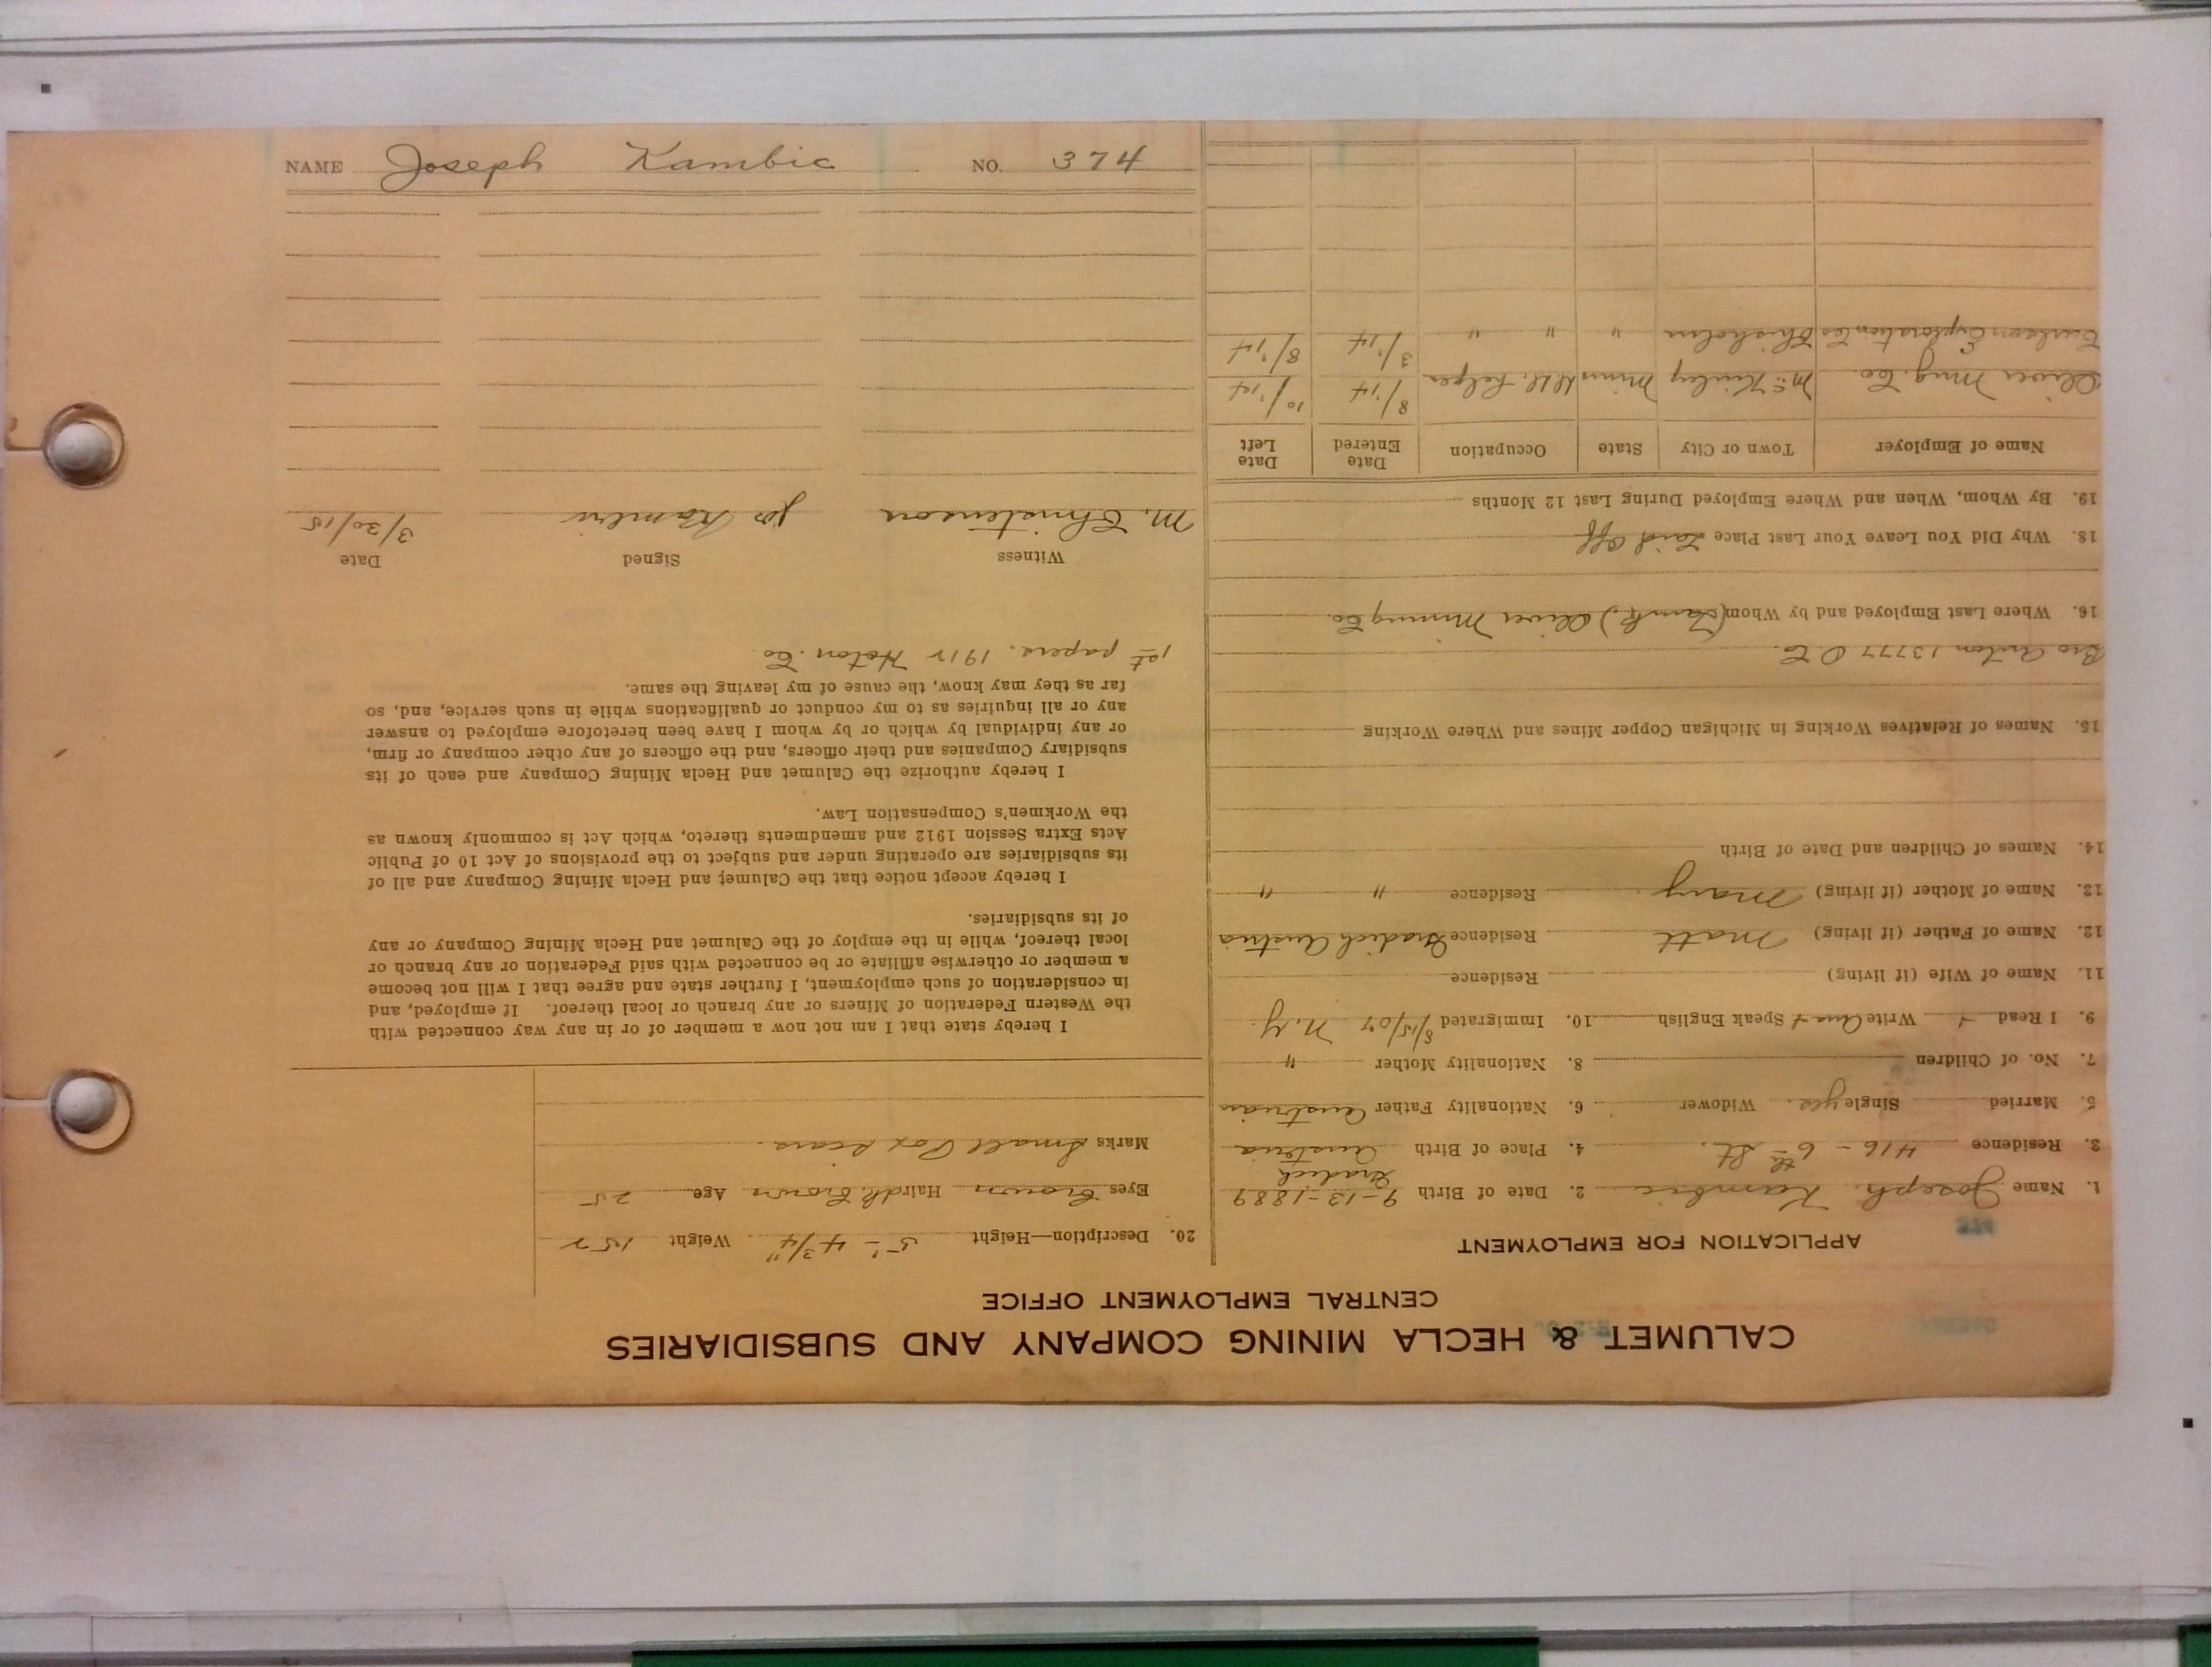 NAME Joseph Kambic NO. 374
CALUMET & HECLA MINING COMPANY AND SUBSIDIARIES
CENTRAL EMPLOYMENT OFFICE
APPLICATION FOR EMPLOYMENT
1. Name Joseph Kambic 2. Date of Birth 9-13-1889
3. Residence 416 - 6th St. 4. Place of Birth Gradich Austria
5. Married Single yes. Widower 6. Nationality Father Austrian
7. No. of Children 8. Nationality Mother "
9. I Read + Write Aus + Speak English 10. Immigrated 8/15/07 N.Y.
11. Name of Wife (if living) Residence
12. Name of Father (if living) Matt Residence Gradich Austria
13. Name of Mother (if living) Mary Residence " "
14. Names of Children and Date of Birth
15. Names of Relatives Working in Michigan Copper Mines and Where Working
Bro Anton 13777 O C.
16. Where Last Employed and by Whom Oliver Mining Co.
18. Why Did You Leave Your Last Place Laid off
19. By Whom, When and Where Employed During Last 12 Months
Name of Employer Town or City State Occupation Date Entered Date Left
Oliver Mng. Co. McKinley Minn helper 8/'14 10/'14
Exploration Co Chisholm " " " 3/'14 8/'14
20. Description—Height 5'-4 3/4" Weight 152
Eyes Brown Hair dk. Brown Age 25
Marks Small Pox scars.
I hereby state that I am not now a member of or in any way connected with
the Western Federation of Miners or any branch or local thereof. If employed, and
in consideration of such employment, I further state and agree that I will not become
a member or otherwise affiliate or be connected with said Federation or any branch or
local thereof, while in the employ of the Calumet and Hecla Mining Company or any
of its subsidiaries.
I hereby accept notice that the Calumet and Hecla Mining Company and all of
its subsidiaries are operating under and subject to the provisions of Act 10 of Public
Acts Extra Session 1912 and amendments thereto, which Act is commonly known as
the Workmen's Compensation Law.
I hereby authorize the Calumet and Hecla Mining Company and each of its
subsidiary Companies and their officers, and the officers of any other company or firm,
or any individual by which or by whom I have been heretofore employed to answer
any or all inquiries as to my conduct or qualifications while in such service, and, so
far as they may know, the cause of my leaving the same.
1st papers. 1912 Hoton. Co.
Witness Signed Date
M. Christenson Jos 3/30/15